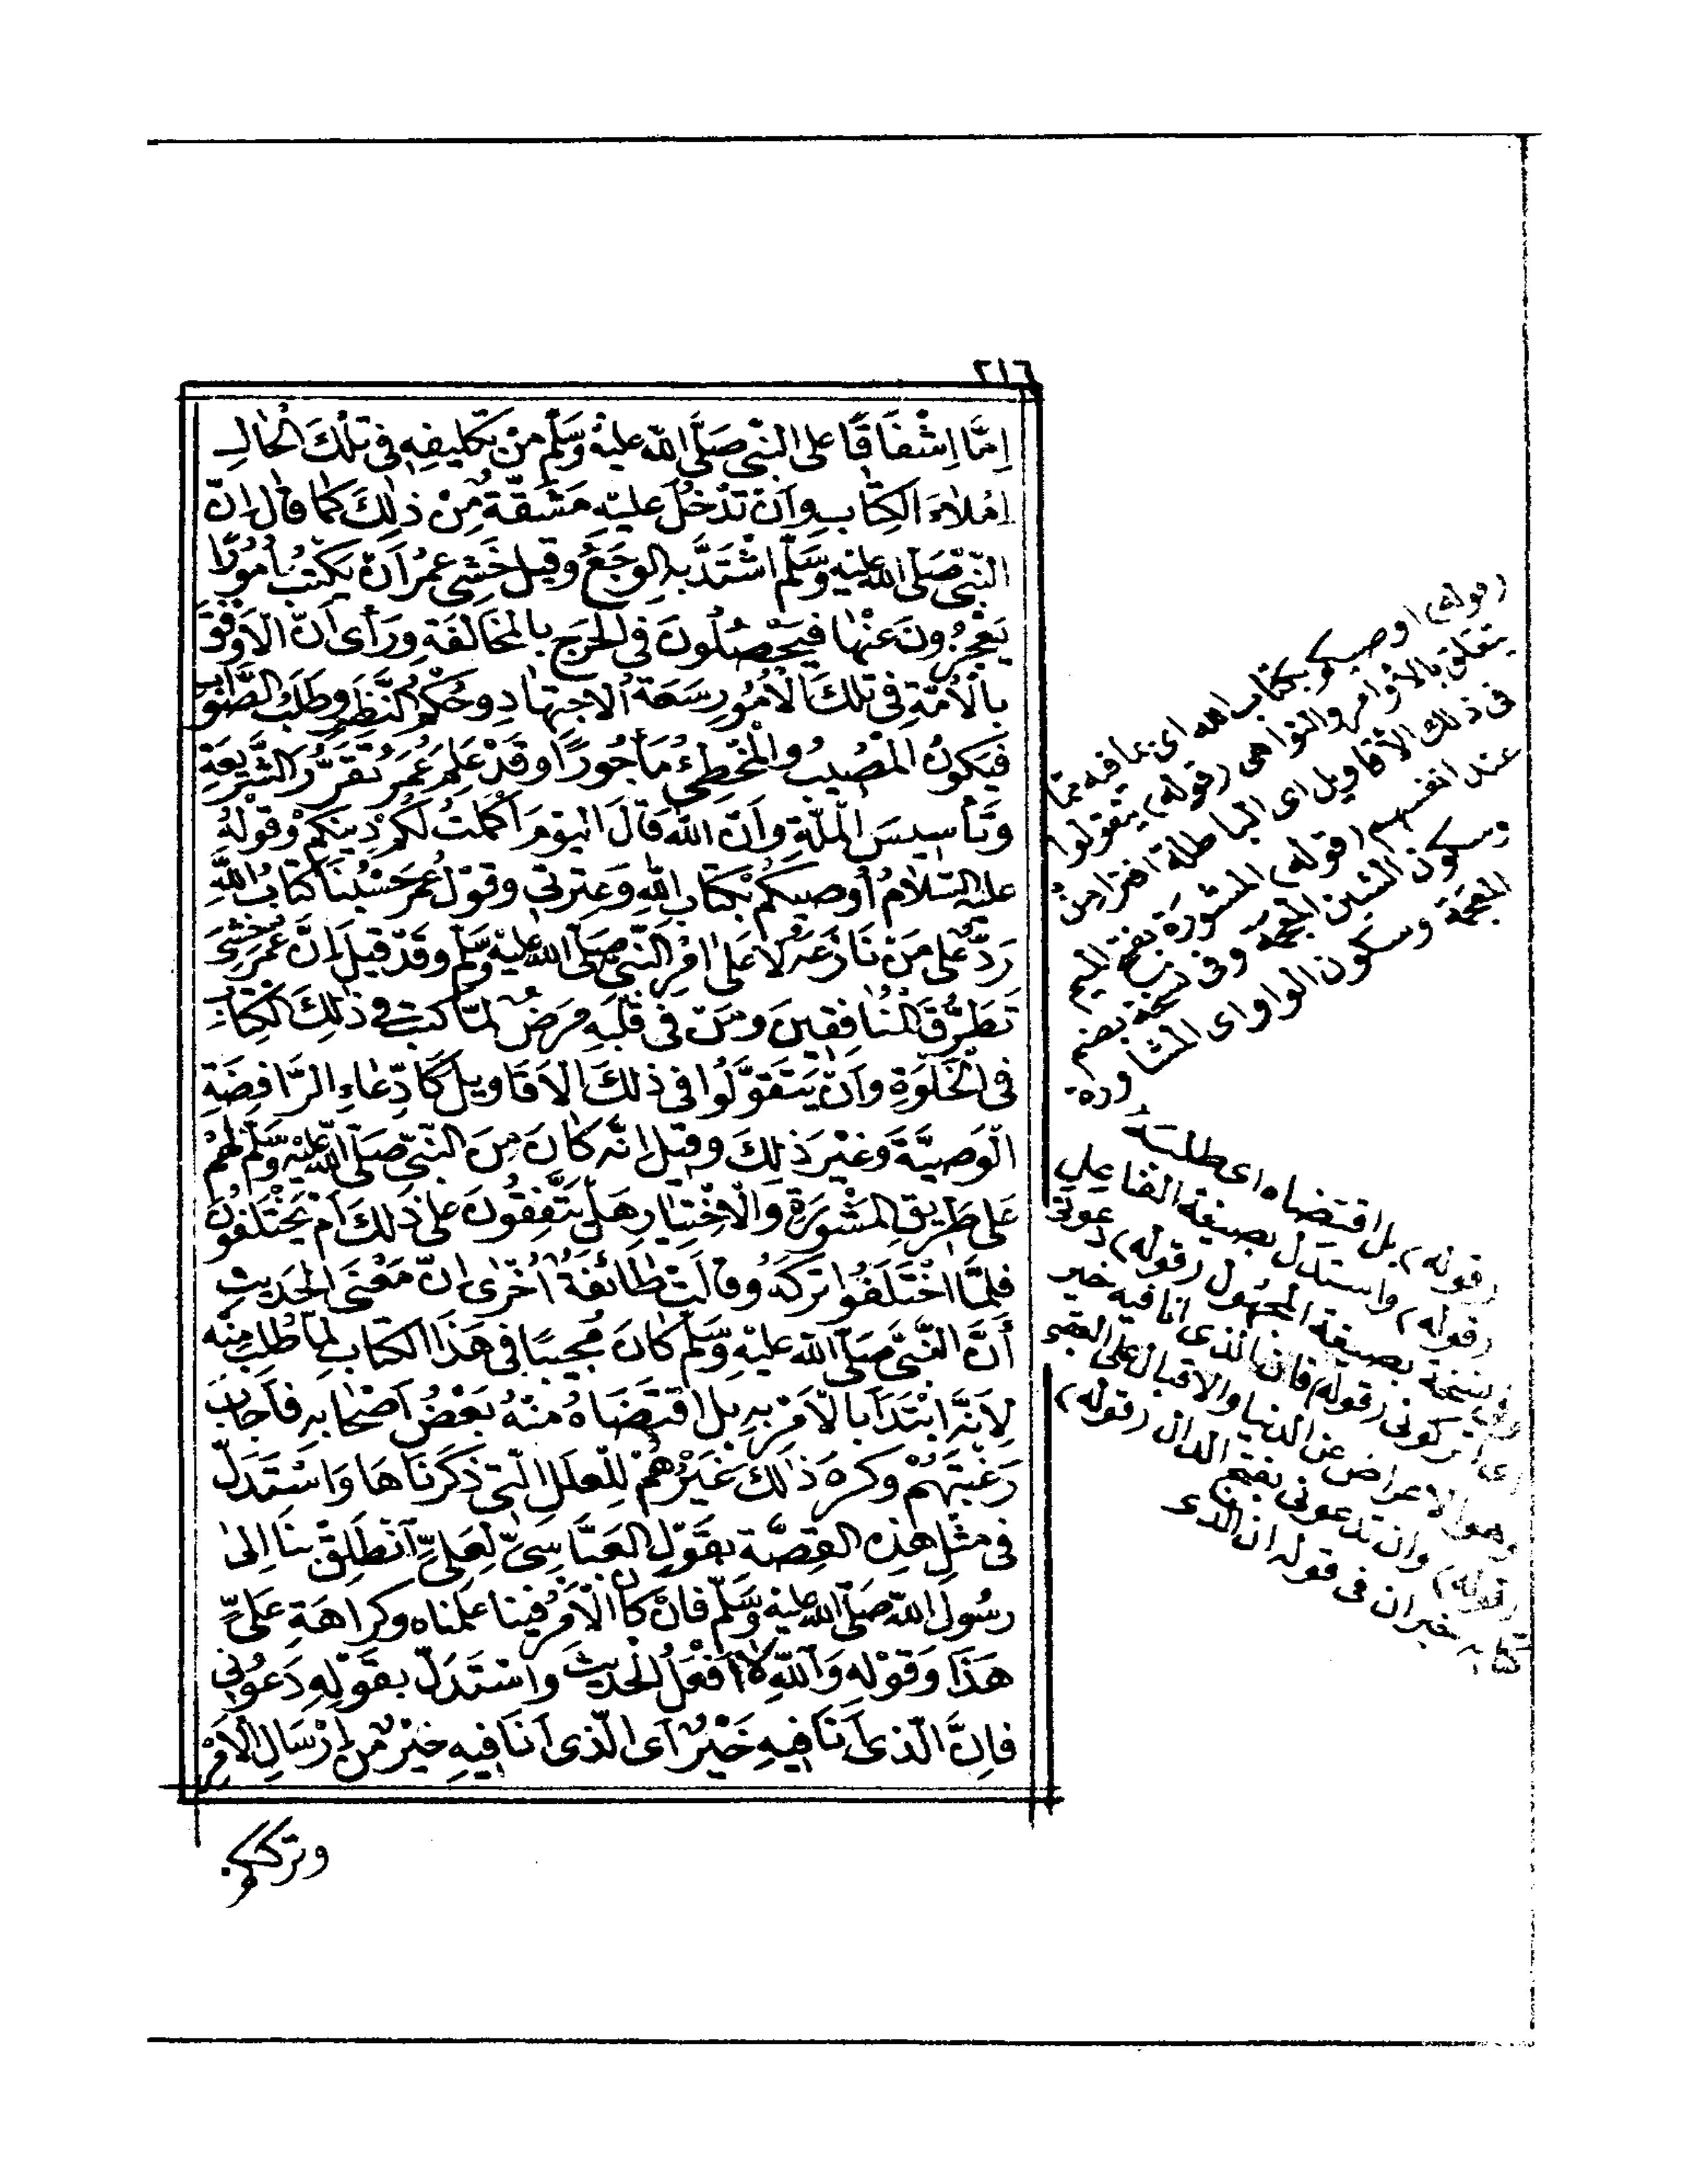 ٢١٦
اِمَّا اِشْفَاقًا عَلى النَّبِىِّ صَلَّى اللّٰه عَلَيْهِ وَسَلَّم مِنْ تَكْلِيفِهِ فِى تِلْكَ الْحَالِ
اِمْلاءَ الكِتَابِ وَاَنْ تَدْخُلَ عَلَيْهِ مَشَقَّةٌ مِنْ ذٰلِكَ كمَا قَال اِنّ
النَّبِىّ صَلَّى اللّٰه عَلَيْهِ وَسَلَّم اشْتَدَّ بِهِ الوَجَعُ وقيل خَشِىَ عُمَرُ اَنْ يَكْتُبَ اُمُورًا
يَعْجِزُونَ عَنْهَا فَيَحْصُلُونَ فِى الْحَرَجِ بِالْمُخَالَفَةِ وَرَأى اَنّ الاَوْفَقَ
بِالاُمَّةِ فِى تِلْكَ الْاُمُورِ سَعَةُ الاِجْتِهَادِ وَحُكْمُ النَّظَرِ وَطَلَبُ الصَّوَابِ
فَيَكُونُ الْمُصِيبُ وَالْمُخْطِئُ مَأْجُورًا وَقَدْ عَلِمَ عُمَرُ تَقَرُّرَ الشَّرِيعَةِ
وَتَأْسِيسَ الْمِلَّةِ وَاَنَّ اللّٰهَ قَالَ الْيَوْمَ اَكْمَلْتُ لَكُمْ دِينَكُمْ وَقَوْلُهُ
عَلَيْهِ السَّلَامُ اُوصِيكُمْ بِكِتَابِ اللّٰهِ وَعِتْرَتِى وَقَوْلُ عُمَرَ حَسْبُنَا كِتَابُ اللّٰهِ
رَدٌّ عَلى مَنْ نَازَعَهُ لَا عَلى اَمْرِ النَّبِىّ صَلَّى اللّٰه عَلَيْهِ وَسَلَّم وَقَدْ قِيلَ اِنَّ عُمَرَ خَشِىَ
تَطَرُّقَ الْمُنَافِقِينَ وَمَنْ فِى قَلْبِهِ مَرَضٌ لِمَا كُتِبَ فِى ذٰلِكَ الكِتَابِ
فِى الْخَلْوَةِ وَاَنْ يَتَقَوَّلُوا فِى ذٰلِكَ الاَقَاوِيلَ كَادِّعَاءِ الرَّافِضَةِ
الْوَصِيَّةَ وَغَيْرَ ذٰلِكَ وَقِيلَ اِنَّهُ كَانَ مِنَ النَّبِىّ صَلَّى اللّٰه عَلَيْهِ وَسَلَّم لَهُمْ
عَلى طَرِيقِ المَشْوَرَةِ وَالاِخْتِبَارِ هَلْ يَتَّفِقُونَ عَلى ذٰلِكَ اَمْ يَخْتَلِفُونَ
فَلَمَّا اخْتَلَفُوا تَرَكَهُ وَقَالَتْ طَائِفَةٌ اُخْرَى اِنّ مَعْنَى الْحَدِيثِ
أَنَّ النَّبِىّ صَلَّى اللّٰه عَلَيْهِ وَسَلَّم كَانَ مُجِيبًا فِى هَذَا الكِتَابِ لِمَا طُلِبَ مِنْه
لاَنَّهُ ابْتَدَأ بِالاَمْرِ بِهِ بَلِ اقْتَضَاهُ مِنْهُ بَعْضُ اَصْحَابِهِ فَاَجَابَ
رَغْبَتَهُمْ وَكَرِهَ ذٰلِكَ غَيْرُهُمْ لِلْعِلَلِ الَّتِى ذَكَرْنَاهَا وَاسْتُدِلَّ
فِى مِثْلِ هٰذِهِ القِصَّةِ بِقَوْلِ العَبَّاسِ لِعَلِىٍّ اَنْطَلِقْ بِنَا اِلى
رَسُولِ اللّٰه صَلَّى اللّٰه عَلَيْهِ وَسَلَّم فَاِنْ كَانَ الْاَمْرُ فِينَا عَلِمْنَاه وَكَرَاهَةِ عَلِىٍّ
هَذَا وَقَوْلِهِ وَاللّٰهِ لَا اَفْعَلُ الْحَدِيثَ وَاسْتُدِلَّ بِقَوْلِهِ دَعُونِى
فَاِنَّ الَّذِى اَنَا فِيهِ خَيْرٌ اَى الَّذِى اَنَا فِيهِ خَيْرٌ مِنْ اِرْسَالِ الْاَمْرِ
وتركِكم
(قوله) اوصيكم بكتاب الله اى بما فيه مما
يتعلق بالأوامر والنواهى (قوله) يتقولوا
فى ذلك الأقاويل اى الباطلة افتراء من
عند انفسهم (قوله) المشورة بفتح الميم
وسكون الشين المعجمة وفى نسخة بضم
المعجمة وسكون الواو اى المشاورة
(قوله) بل اقتضاه اى طلب منه
(قوله) واستدل بصيغة الفاعل
وفى نسخة بصيغة المجهول (قوله) دعونى
اى اتركونى (قوله) فان الذى انا فيه خير
وهو الاعراض عن الدنيا والاقبال على العقبى
(قوله) وان تدعونى بفتح الدال (قوله)
خبران فى قوله ان الذى